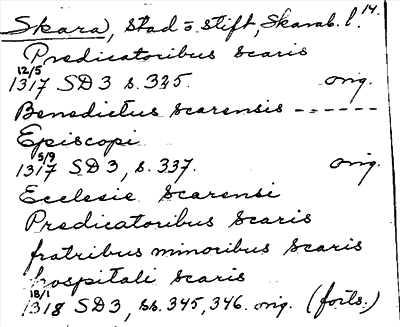 Skara, stad o stift, Skarab. l. 14.
Predicatoribus scaris
12/5
1317 SD3 s. 325. orig.
Benedictus scarensis ------
Episcopi
5/9
1317 SD3, s. 337. orig.
Ecclesie scarensi
Predicatoribus scaris
fratribus minoribus scaris
hospitali scaris
18/1
1318 SD3, ss. 345, 346. orig. (forts.)